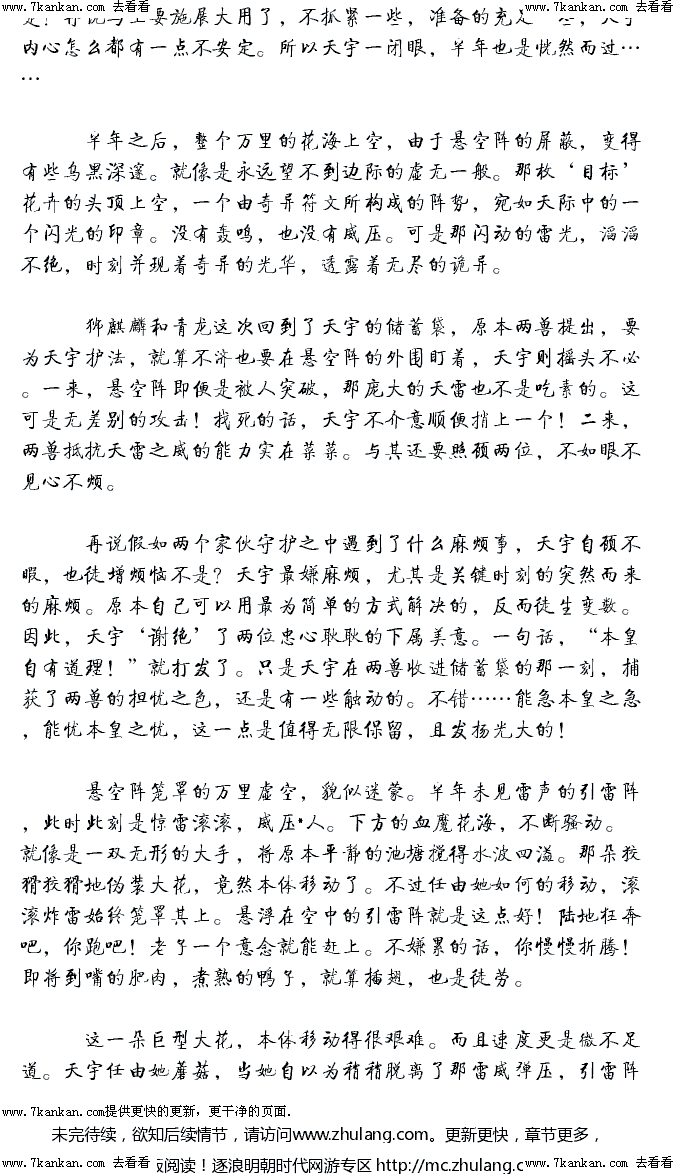 www.7kankan.com 去看看 www.7kankan.com 去看看 www.7kankan.com 去看看 www.7kankan.com 去看看 www.7kankan.com 去看看
内心怎么都有一点不安定。所以天宇一闭眼，半年也是恍然而过…
…
半年之后，整个万里的花海上空，由于悬空阵的屏蔽，变得
有些乌黑深邃。就像是永远望不到边际的虚无一般。那枚‘目标’
花卉的头顶上空，一个由奇异符文所构成的阵势，宛如天际中的一
个闪光的印章。没有轰鸣，也没有威压。可是那闪动的雷光，滔滔
不绝，时刻并现着奇异的光华，透露着无尽的诡异。
狮麒麟和青龙这次回到了天宇的储蓄袋，原本两兽提出，要
为天宇护法，就算不济也要在悬空阵的外围盯着，天宇则摇头不必
。一来，悬空阵即便是被人突破，那庞大的天雷也不是吃素的。这
可是无差别的攻击！找死的话，天宇不介意顺便捎上一个！二来，
两兽抵抗天雷之威的能力实在菜菜。与其还要照顾两位，不如眼不
见心不烦。
再说假如两个家伙守护之中遇到了什么麻烦事，天宇自顾不
暇，也徒增烦恼不是？天宇最嫌麻烦，尤其是关键时刻的突然而来
的麻烦。原本自己可以用最为简单的方式解决的，反而徒生变数。
因此，天宇‘谢绝’了两位忠心耿耿的下属美意。一句话，“本皇
自有道理！”就打发了。只是天宇在两兽收进储蓄袋的那一刻，捕
获了两兽的担忧之色，还是有一些触动的。不错……能急本皇之急
，能忧本皇之忧，这一点是值得无限保留，且发扬光大的！
悬空阵笼罩的万里虚空，貌似迷蒙。半年未见雷声的引雷阵
，此时此刻是惊雷滚滚，威压*人。下方的血魔花海，不断骚动。
就像是一双无形的大手，将原本平静的池塘搅得水波四溢。那朵狡
猾狡猾地伪装大花，竟然本体移动了。不过任由她如何的移动，滚
滚炸雷始终笼罩其上。悬浮在空中的引雷阵就是这点好！陆地狂奔
吧，你跑吧！老子一个意念就能赶上。不嫌累的话，你慢慢折腾！
即将到嘴的肥肉，煮熟的鸭子，就算插翅，也是徒劳。
这一朵巨型大花，本体移动得很艰难。而且速度更是微不足
道。天宇任由她蘑菇，当她自以为稍稍脱离了那雷威弹压，引雷阵
www.7kankan.com提供更快的更新，更干净的页面.
未完待续，欲知后续情节，请访问www.zhulang.com。更新更快，章节更多，
www.7kankan.com 去看看 www.7kankan.com 去看看 www.7kankan.com 去看看 www.7kankan.com 去看看 www.7kankan.com 去看看
阅读！逐浪明朝时代网游专区 http://mc.zhulang.com